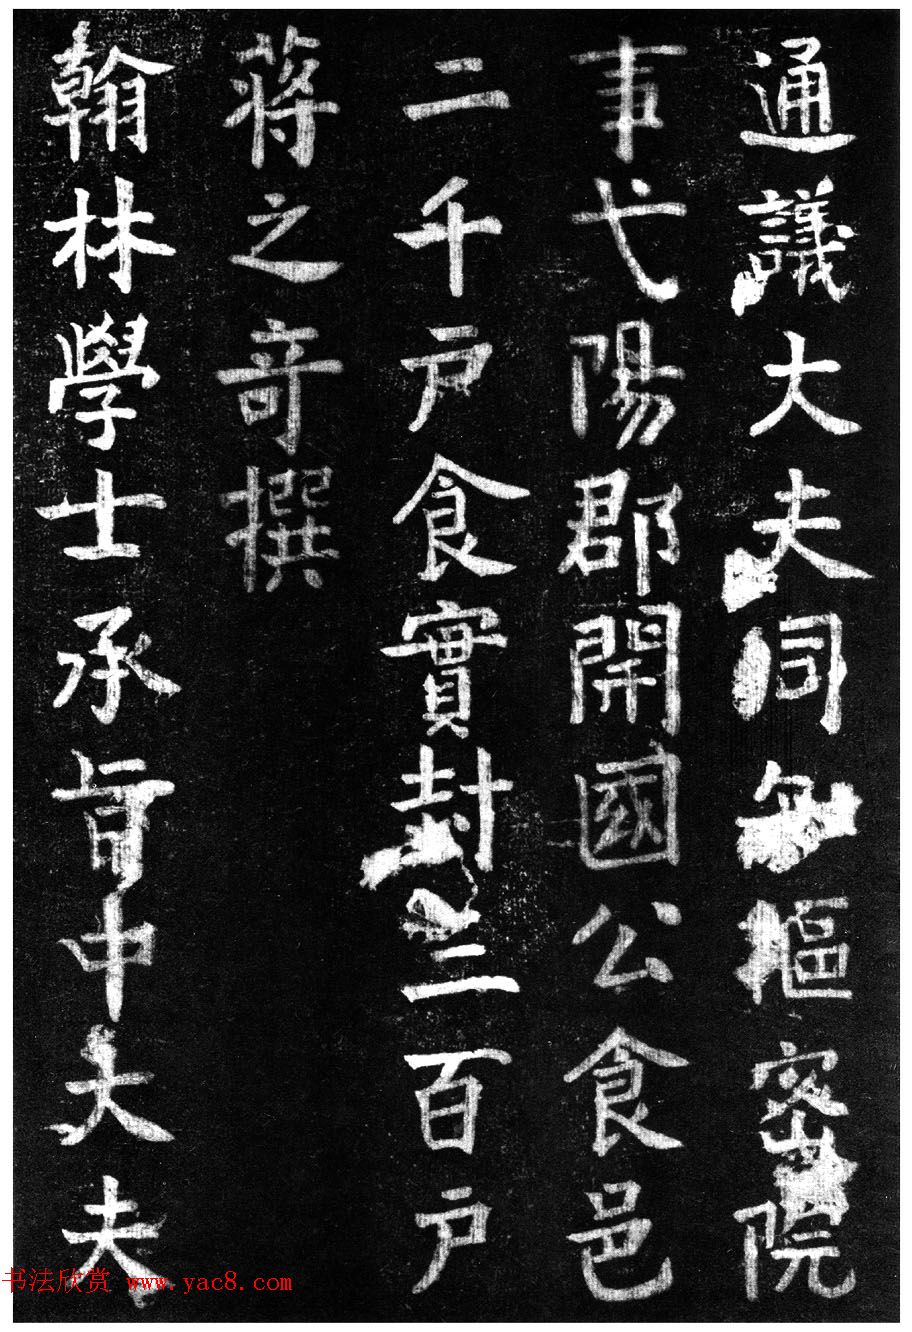 通議大夫同知樞密院
事弋陽郡開國公食邑
二千戶食實封三百戶
蔣之奇撰
翰林學士承旨中大夫
书法欣赏 www.yac8.com